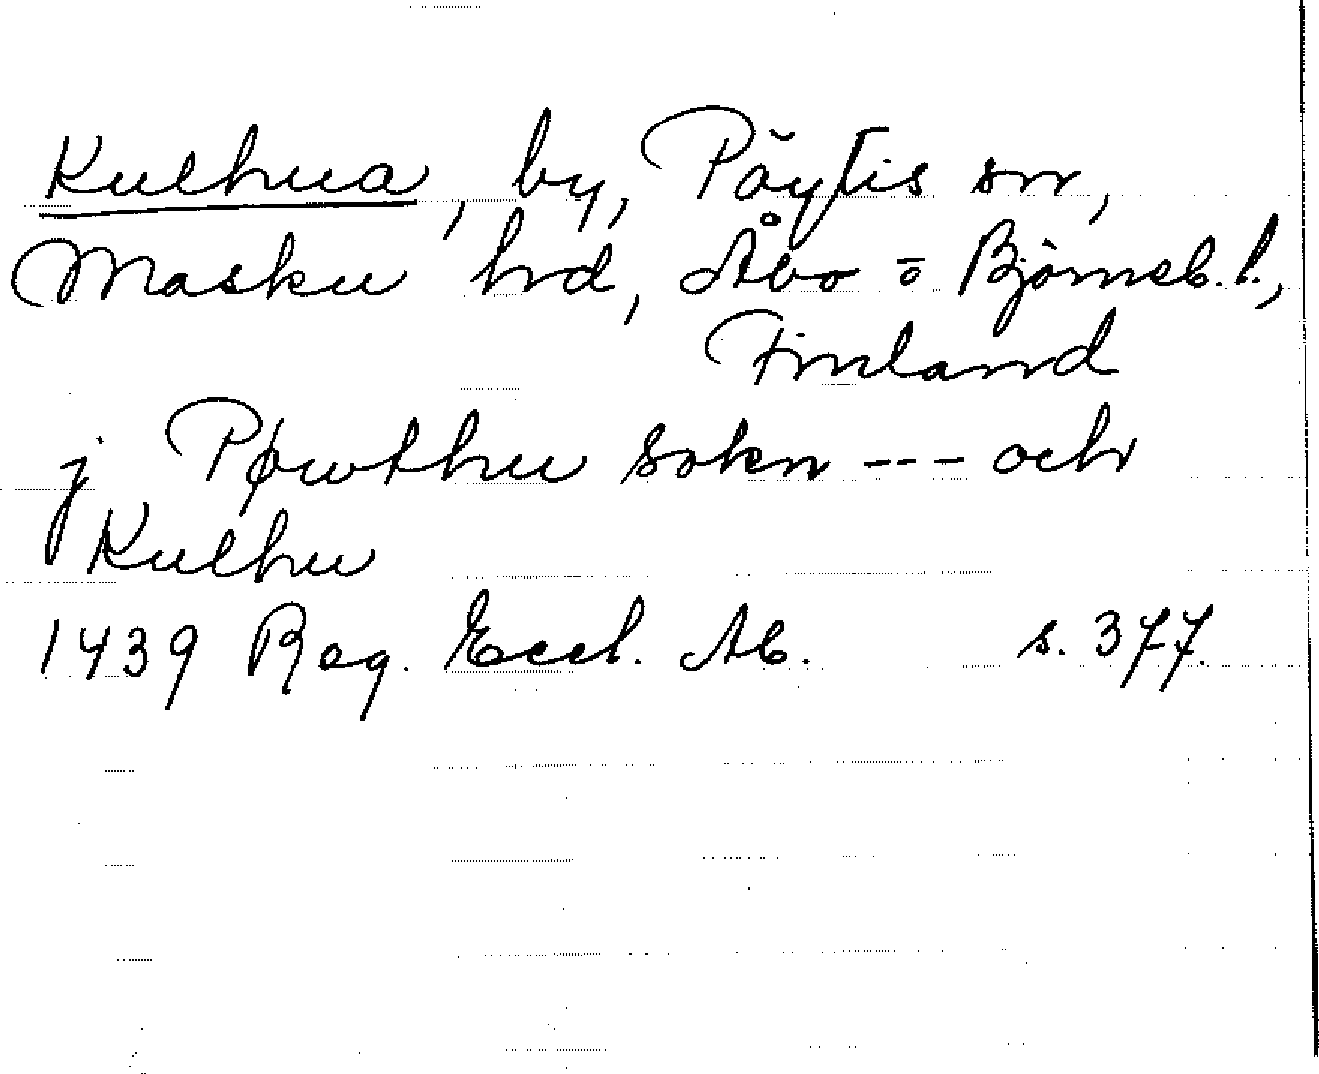 Kulhua, by, Pöytis sn,
Masku hd, Åbo o Björneb. l.,
Finland
j Pøwthu sokn --- och
Kulhu
1439 Reg. Eccl. Ab. s. 377.